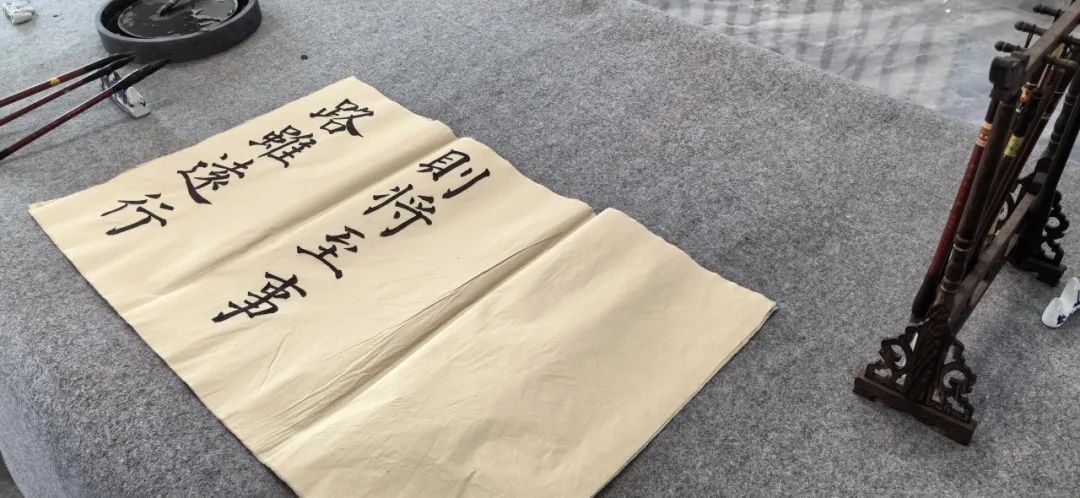 路雖遠行
則将至事